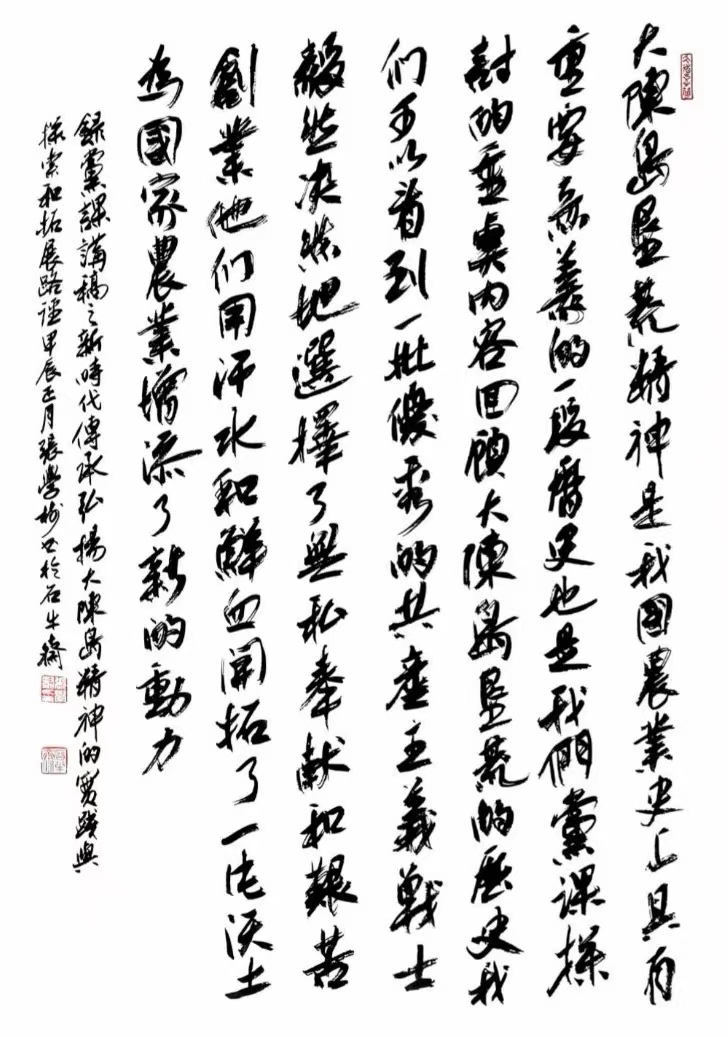 大陳島墾荒精神是我國農業史上具有
重要意義的一段曆史也是我們黨課探
討的重要内容回顧大陳島墾荒的歷史我
们可以看到一批優秀的共產主義戰士
毅然决然地選擇了無私奉献和艱苦
創業他们用汗水和鮮血開拓了一片沃土
為國家農業增添了新的動力
録黨課講稿之新時代傳承弘揚大陳島精神的實踐與
探索和拓展路徑甲辰正月張學 书於石牛齋